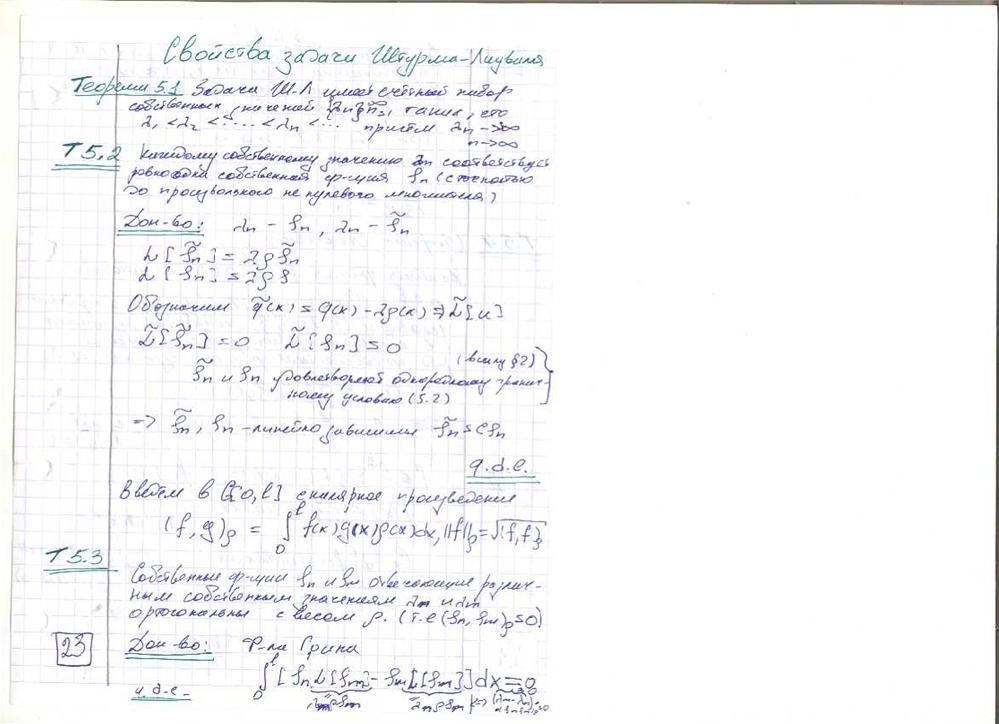 Свойства задачи Штурма-Лиувиля
Теорема 5.1 Задача Ш-Л имеет счётный набор
собственных значений {λn}∞n=1 таких, что
λ1 < λ2 < ... < λn < ... причём λn → ∞
n→∞
T 5.2 Каждому собственному значению λn соответствует
ровно одна собственная ф-ция ϑn (с точностью
до произвольного не нулевого множителя)
Док-во: λn - ϑn, λn - ϑ̃n
L[ϑ̃n] = λρϑ̃n
L[ϑn] = λρϑ
Обозначим q̃(x) = q(x) - λρ(x) ⇒ L̃[u]
L̃[ϑ̃n] = 0 L̃[ϑn] = 0
(в силу §2)
ϑ̃n и ϑn удовлетворяют однородному гранич-
ному условию (5.2)
=> ϑ̃n, ϑn - линейно зависимы ϑ̃n = cϑn
q.d.e.
Введём в C[0,l] скалярное произведение
(f, g)ρ = ∫0l f(x)g(x)ρ(x)dx, ||f||ρ = √(f,f)ρ
T 5.3
Собственные ф-ции ϑn и ϑm отвечающие различ-
ным собственным значениям λn и λm
ортогональны с весом ρ. (т.е (ϑn, ϑm)ρ = 0)
23 Док-во: Ф-ла Грина
∫0l [ϑn L[ϑm] - ϑm L[ϑn]] dx = 0
q.d.e.